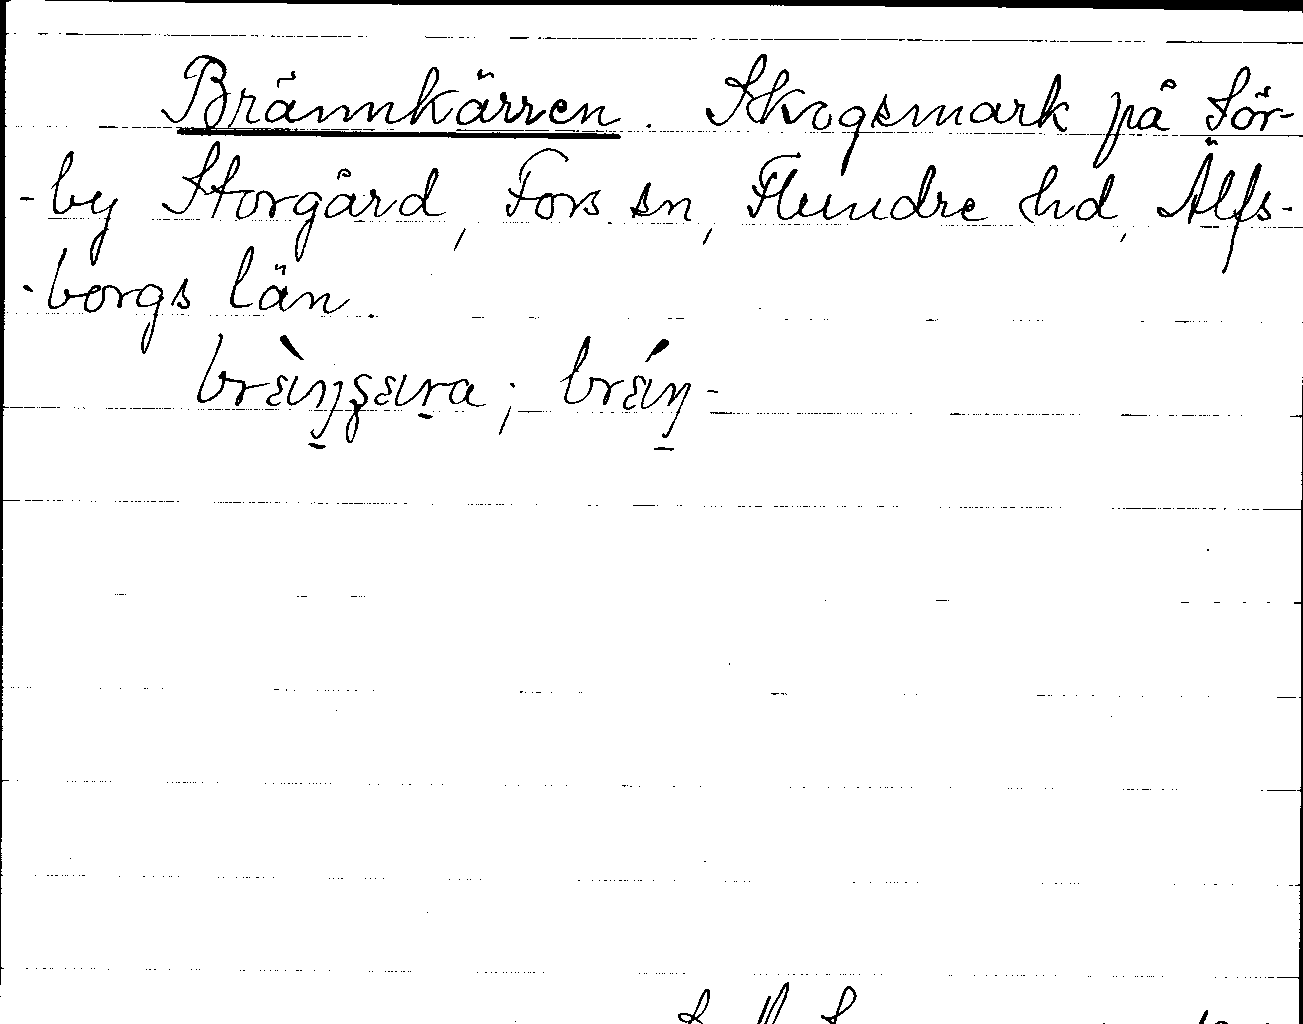 Brännkärren. Skogsmark på Sör-
-by Storgård, Fors sn, Flundre hd, Älfs-
-borgs län.